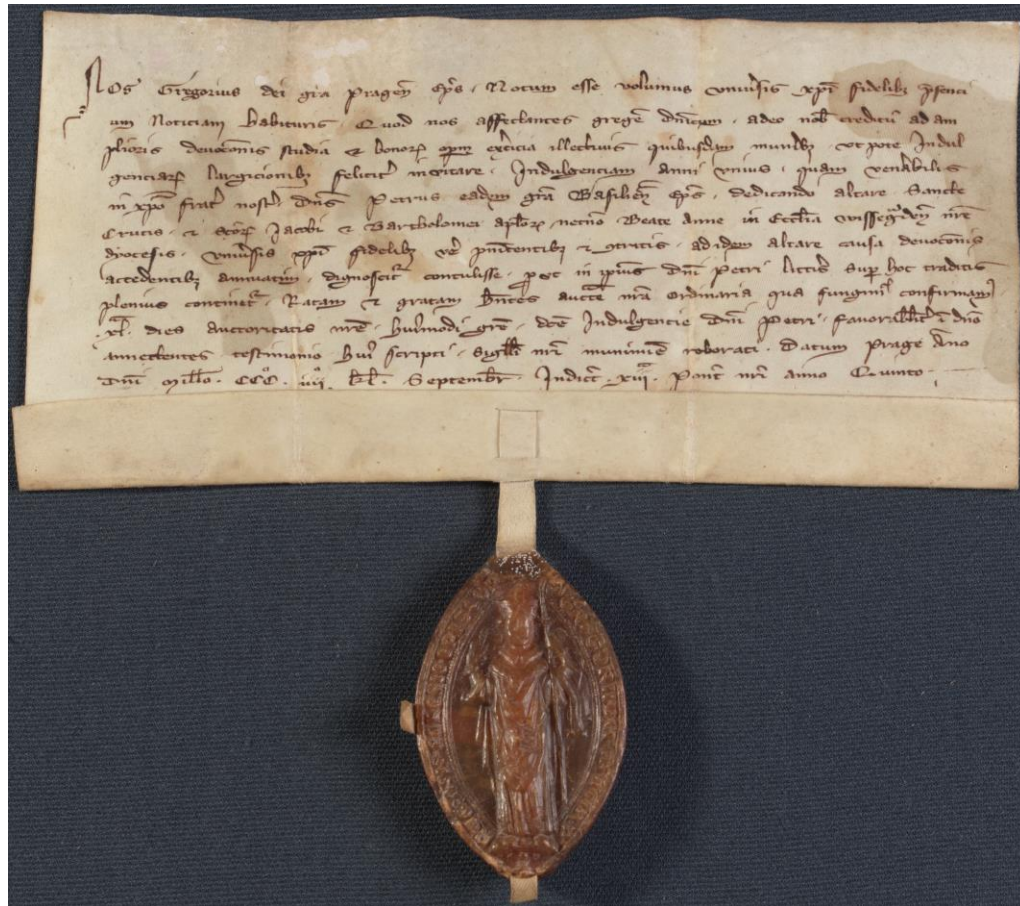 Nos Gregorius dei gr̄a Pragen̄ ep̄s . Notum esse volumus vniu̓sis xp̄i fidelib; p̄senci
um Noticiam habituris . Quod nos affectantes gregē dn̄icum . adeo nob̄ creditū ad am
plioris deuocōnis studia ⁊ bonoꝝ opm̄ ex̓cicia illectiuis quibusdam munib; . vtpote Indul
genciaꝝ largicionib; felicit̓ inuitare . Indulgenciam Anni vnius . quam venabilis
in xp̄o frat̓ nost̓ dn̄s Petrus eadem gr̄a Basilien̄ ep̄s . dedicando altare Sancte
Crucis . ⁊ sc̄oꝝ Jacobi ⁊ Bartholomei apl̄oꝝ . necn̄o Beate Anne in Eccl̄ia wissegᵃden̄ nr̄e
dyocesis . vniu̓sis xp̄i fidelib; ve̓ penitentib; ⁊ ꝯtritis . ad idem altare causa deuocōnis
accedentib; annuatim . dignoscit᷑ contulisse . ꝓut in ip̄ius dn̄i Petri litt̓is sup̓ hoc traditis
plenius continet᷑ . Ratam ⁊ gratam hn̄tes auctē nr̄a Ordinaria qua fungim᷒ confirmam᷒ .
.xl. dies auctoritatis nr̄e . hui᷒modi gr̄e . dc̄e Indulgencie dn̄i Petri . fauorabilit̓ ī dn̄o
annectentes testimonio hui᷒ scripti . Sigilli nr̄i munimīe roborati . Datum Prage Āno
dn̄i Mill̄o . CCCº . iiijº . kl̄ . Septembr̄ . Indict̄ . xiijᵃ . Pont̄ nr̄i anno Quinto .